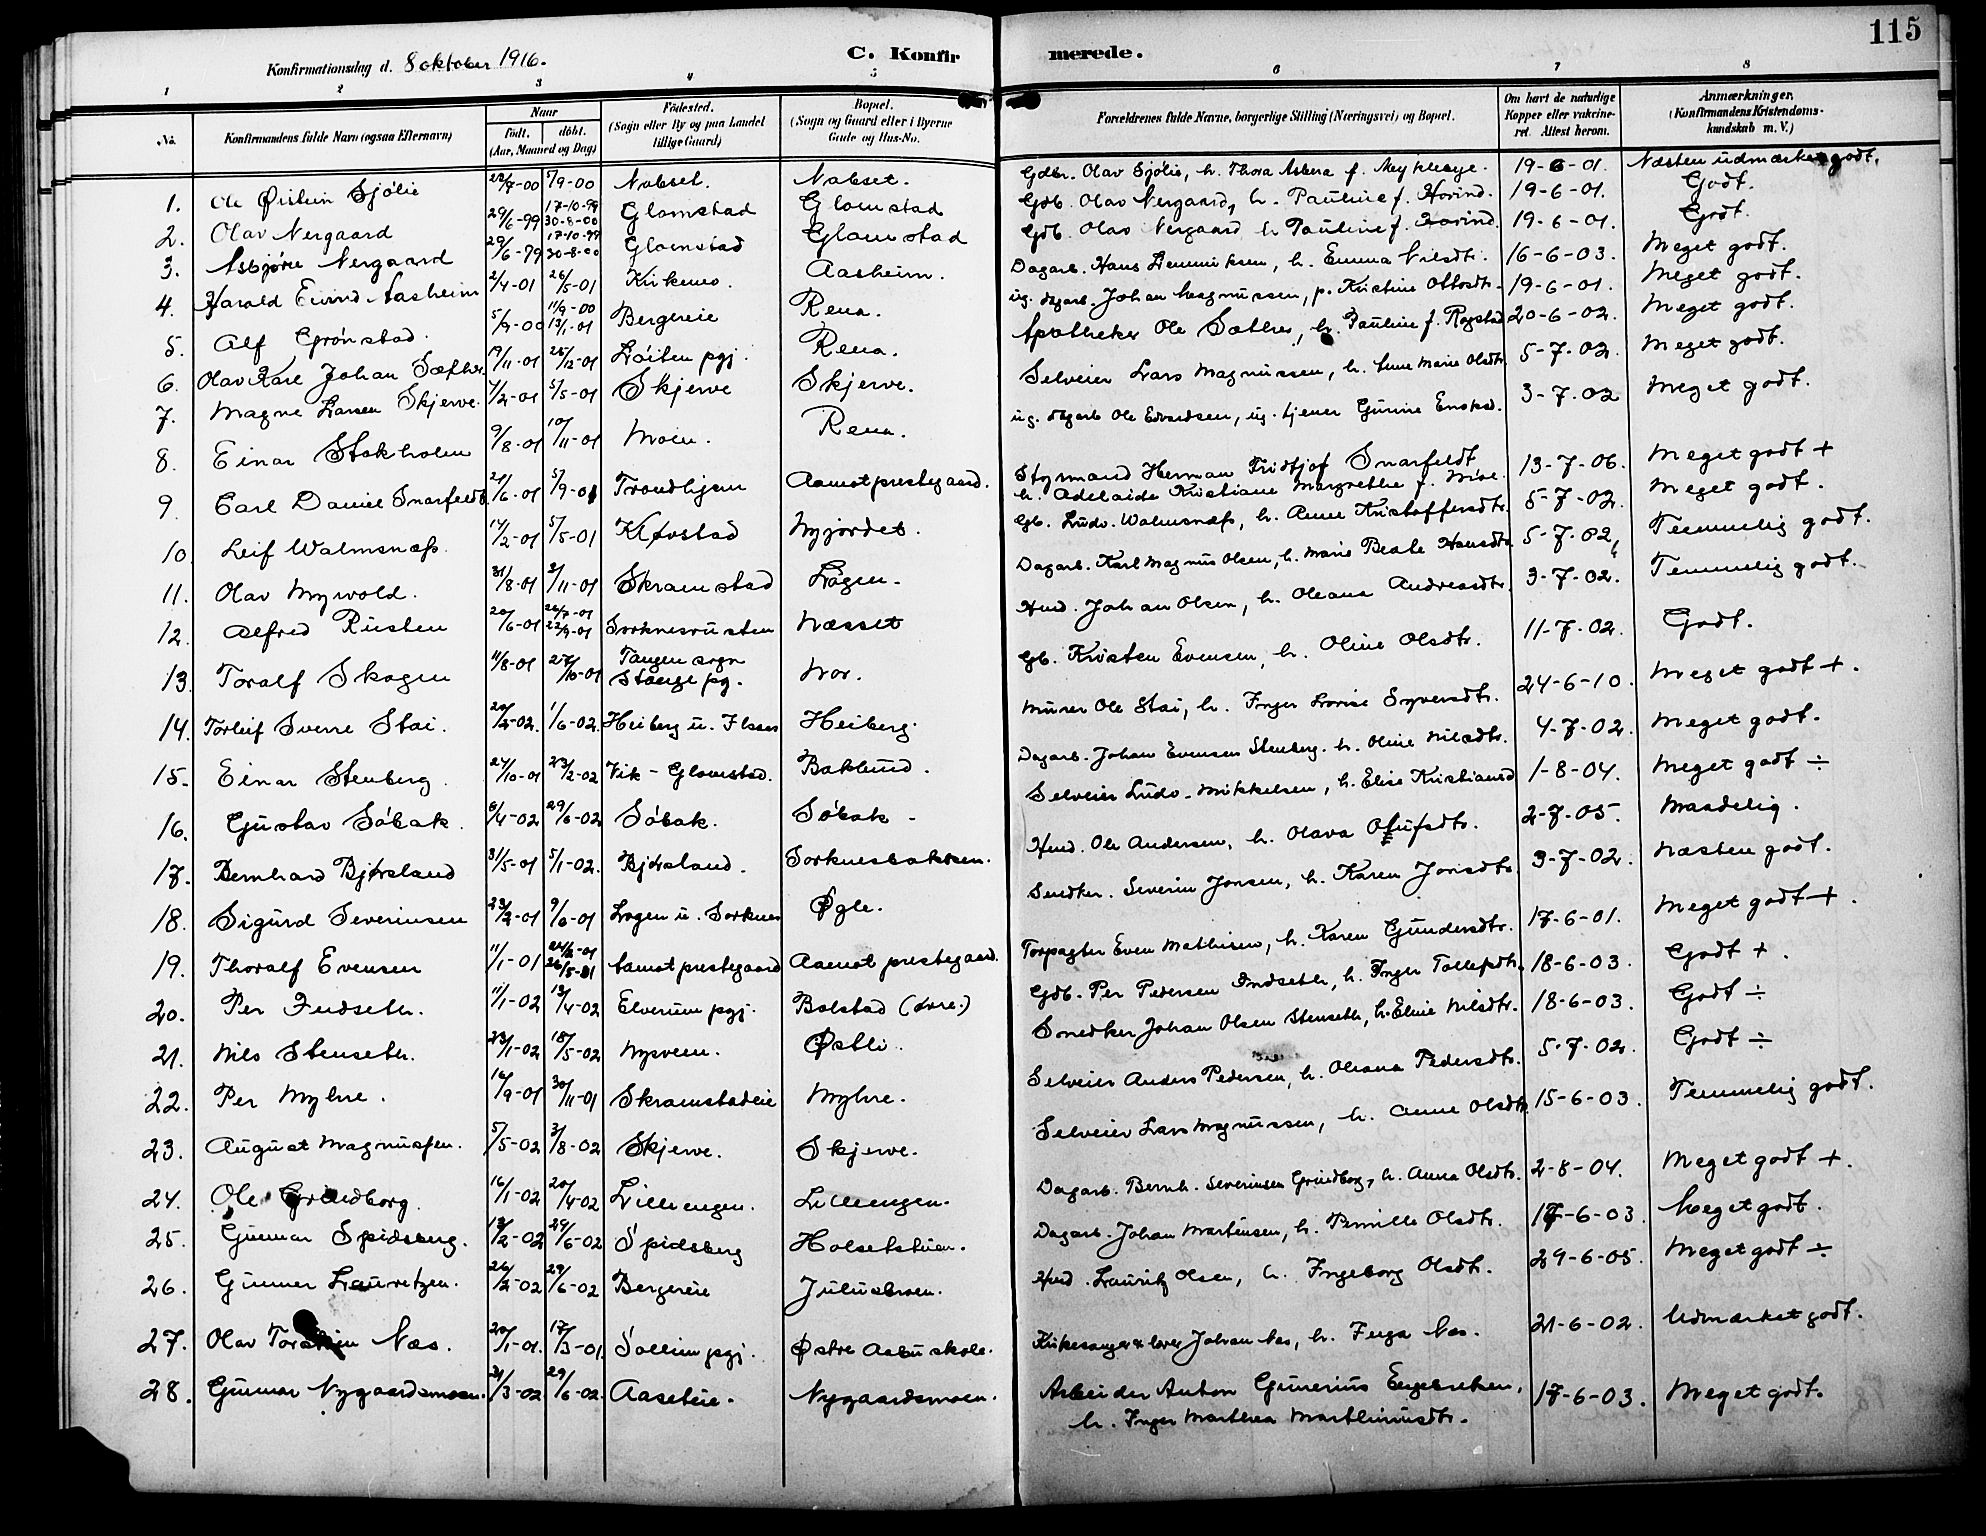 115
Konfirmationsdag d. 8 oktober 1916.
C. Konfirmerede.
1 2 3 4 5 6 7 8
No. Konfirmandens fulde Navn (ogsaa Efternavn) Naar født. døbt. (Aar, Maaned og Dag) Fødested. (Sogn eller By og paa Landet tillige Gaard) Bopæl. (Sogn og Gaard eller i Byerne Gade og Hus-No. Forældrenes fulde Navne, borgerlige Stilling (Næringsvei) og Bopæl. Om havt de naturlige Kopper eller vaccineret. Attest herom. Anmærkninger. (Konfirmandens Kristendomskundskab m. V.)
1. Ole Øistein Sjølie 22/7-00 5/9-00 Nabset. Nabset. Gdbr. Olav Sjølie, h. Thora Asbera f. 19-6-01. Næsten udmærket godt.
2. Olav Nergaard 29/6-99 17-10-99 30-8-00 Glomstad Glomstad Gdb. Olav Nergaard, h. Pauline f. Hovind. 19-6-01. Godt.
3. Asbjørn Nergaard 29/6-79 17-10-99 30-8-00 Glomstad Glomstad Gdb. Olav Nergaard h. Pauline f. Hovind. 19-6-01. Godt.
4. Harald Eivind Aasheim 2/4-01 26/5-01 Kirkemo. Aasheim. Dagarb. Hans Henriksen, h. Emma Nilsdtr. 16-6-03. Meget godt.
5. Alf Grønstad. 5/9-00 11/9-00 13/1-01 Bergereie Rena. ug. dagarb. Johan Magnussen, p. Kristine Ottosdtr. 19-6-01. Meget godt.
6. Olav Kare Johan Sæther 19/11-01 26/12-01 Løiten pgj. Rena. Apotheker Ole Sæther, h. Pauline f. Rogstad 20-6-02. Meget godt.
7. Magne Larsen Skjerve. 4/2-01 5/5-01 Skjerve Skjerve. Selveier Lars Magnussen, h. Anne Marie Olsdtr. 5-7-02. Meget godt.
8. Einar Stokholm 9/8-01 10/11-01 Moen. Rena. ug. dagarb. Ole Edvardsen, ug. tjener Gunine 3-7-02 Meget godt.
9. Carl Daniel Snarfeldt 21/6-01 5/9-01 Trondhjem Aamot prestegaard. Styrmand Herman Fridtjof Snarfeldt
h. Adelaide Kristiane Margrethe f. 13-7-06. Meget godt +
10. Leif Walmsnæss. 17/2-01 5/5-01 Kløvstad Nyjordet. Gb. Ludv. Walmsnæss, h. Anne Kristoffersdtr. 5-7-02. Meget godt.
11. Olav Myrvold. 31/8-01 3/11-01 Skramstad Løgen. Dagarb. Karl Magnus Olsen, h. Marie Beate Hansdtr. 5-7-02, Temmelig godt.
12. Alfred Rusten 20/6-01 26/7-01 22/9-01 Sorknesrusten Næsset Husd. Johan Olsen, h. Oleana Andreasdtr. 3-7-02. Temmelig godt.
13. Toralf Skogen 11/8-01 27/10-01 Tangen sogn
Stange pg. Nor. Gb. Kristen Evensen, h. Oline Olsdtr. 11-7-02. Godt.
14. Torleif Sverre Stai. 20/2-02. 1/6-02. Heiberg u. Heiberg. Murer Ole Stai, h. Inger Lovise Syversdtr. 24-6-10. Meget godt +.
15. Einar Stenberg. 24/10-01 23/2-02 Vik - Glomstad. Baklund. Dagarb. Johan Evensen Stenberg. h. Oline Nilsdtr. 4-7-02. Meget godt.
16. Gustav Søbak. 8/4-02 29/6-02 Søbak. Søbak - Selveier Ludv. Mikkelsen, h. Elise Kristiansd. 1-8-04. Meget godt ÷
17. Bernhard Bjørsland 31/5-01 5/1-02. Bjørsland. Sorknesbakken. Husd. Ole Andersen, h. Olava Olufsdtr. 2-7-05. Maadelig.
18. Sigurd Severinsen 23/2-01 9/6-01 Løgen u. Sorknes Øgle. Snedker. Severin Jonsen, h. Karen Jonsdtr. 3-7-02. Næsten godt.
19. Thoralf Evensen 11/1-01 24/2-01 26/5-01 Aamot prestegaard Aamot prestegaard. Torpagter Even Mathisen, h. Karen Gundersdtr. 17-6-01. Meget godt +.
20. Per Indseth. 11/1-02 13/4-02 Elverum pgj. Bolstad (øvre.) Gdb. Per Pedersen Indseth, h. Inger Tollefsdtr. 18-6-03. Godt +.
21. Nils Stenseth. 23/1-02 18/5-02 Nysveen. Østli. Snedker Johan Olsen Stenseth, h. Eline Nilsdtr. 18-6-03. Godt ÷
22. Per Myhre. 16/9-01 30/11-01 Skramstadeie Myhre. Selveier Anders Pedersen, h. Oleana Pedersdtr. 5-7-02. Godt ÷
23. August Magnussen. 5/5-02 3/8-02 Skjerve. Skjerve. Selveier Lars Magnussen, h. Anne Olsdtr. 15-6-03. Temmelig godt.
24. Ole Grindborg. 16/1-02 20/4-02 Lillengen. Lillengen. Dagarb. Bernh. Severinsen Grindborg, h. Anna Olsdtr. 2-8-04. Meget godt +.
25. Gunnar Spidsberg. 13/2-02 29/6-02 Spidsberg Holsetstuen. Dagarb. Johan Martinsen, h. Pernille Olsdtr. 17-6-03. Meget godt.
26. Gunner Lauretzen. 26/2-02 29/6-02 Bergereie Julusmoen. Husd. Lauritz Olsen, h. Ingeborg Olsdtr. 29-6-05. Meget godt ÷
27. Olav Torstein Næs. 20/1-01. 17/3-01. Sollien pgj. Østre Aasbu skole. Kirkesanger & lærer Johan Næs, h. Inga Næs. 21-6-02. Udmærket godt.
28. Gunnar Nygaardsmoen. 31/3-02 29/6-02. Aaseteie. Nygaardsmoen. Arbeider Anton Gunerius Engebretsen,
h. Inger Marthea Marthinusdtr. 17-6-03. Meget godt.